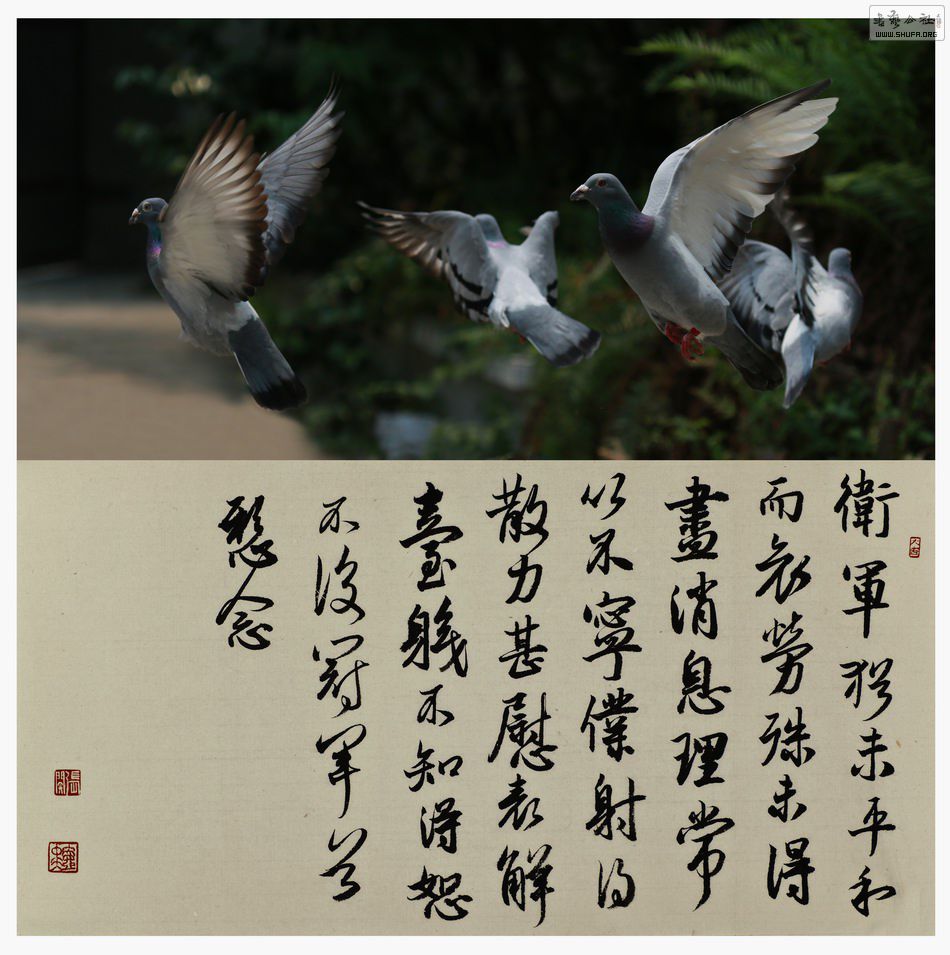 书艺公社
WWW.SHUFA.ORG
衛軍猶未平和
而勞殊未得
盡消息理常
以不寧僕射得
散力甚慰表解
臺職不知得恕
不復冠軍
愁念